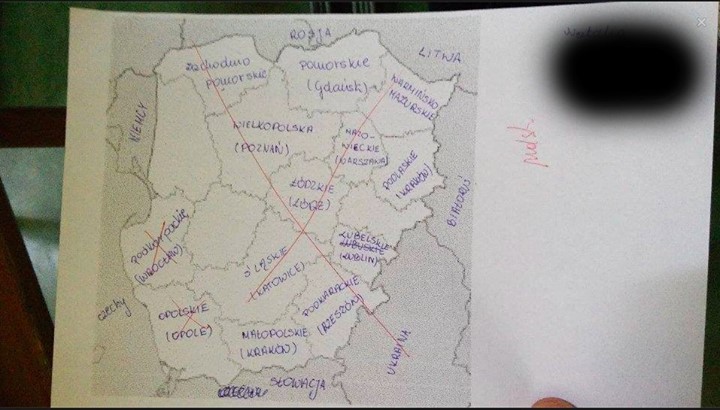 ROSJA
LITWA
zachodnio
pomorskie
Pomorskie
(Gdańsk)
WARMIŃSKO
MAZURSKIE
NIEMCY
WIELKOPOLSKA
(POZNAŃ)
MAZO-
WIECKIE
(WARSZAWA)
PODLASKIE
(KRAKÓW)
ŁÓDZKIE
(ŁÓDŹ)
BIAŁORUŚ
podkarpackie
(WROCŁAW)
LUBELSKIE
LUBUSKIE
(LUBLIN)
ŚLĄSKIE
(KATOWICE)
PODKARACKIE
(RZESZÓW)
czechy
OPOLSKIE
(OPOLE)
MAŁOPOLSKIE
(KRAKÓW)
UKRAINA
SŁOWACJA